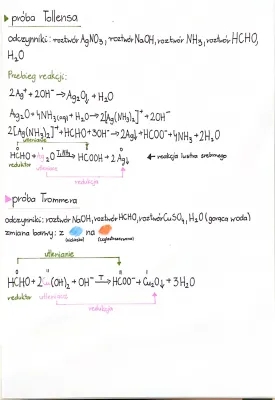 próba Tollensa
odczynniki: roztwór AgNO₃, roztwór NaOH, roztwór NH₃, roztwór HCHO,
H₂O
Przebieg reakcji:
2Ag⁺ + 2OH⁻ → Ag₂O↓ + H₂O
Ag₂O + 4NH₃(aq) + H₂O → 2[Ag(NH₃)₂]⁺ + 2OH⁻
2[Ag(NH₃)₂]⁺ + HCHO + 3OH⁻ → 2Ag↓ + HCOO⁻ + 4NH₃ + 2H₂O
utlenianie
0 I II 0
HCHO + Ag₂O T, NH₃→ HCOOH + 2Ag↓ ← reakcja lustra srebrnego
reduktor utleniacz
redukcja
próba Trommera
odczynniki: roztwór NaOH, roztwór HCHO, roztwór CuSO₄, H₂O (gorąca woda)
zmiana barwy: z na
(niebieski) (ceglastoczerwony)
utlenianie
0 II II I
HCHO + 2Cu(OH)₂ + OH⁻ T→ HCOO⁻ + Cu₂O↓ + 3H₂O
reduktor utleniacz
redukcja